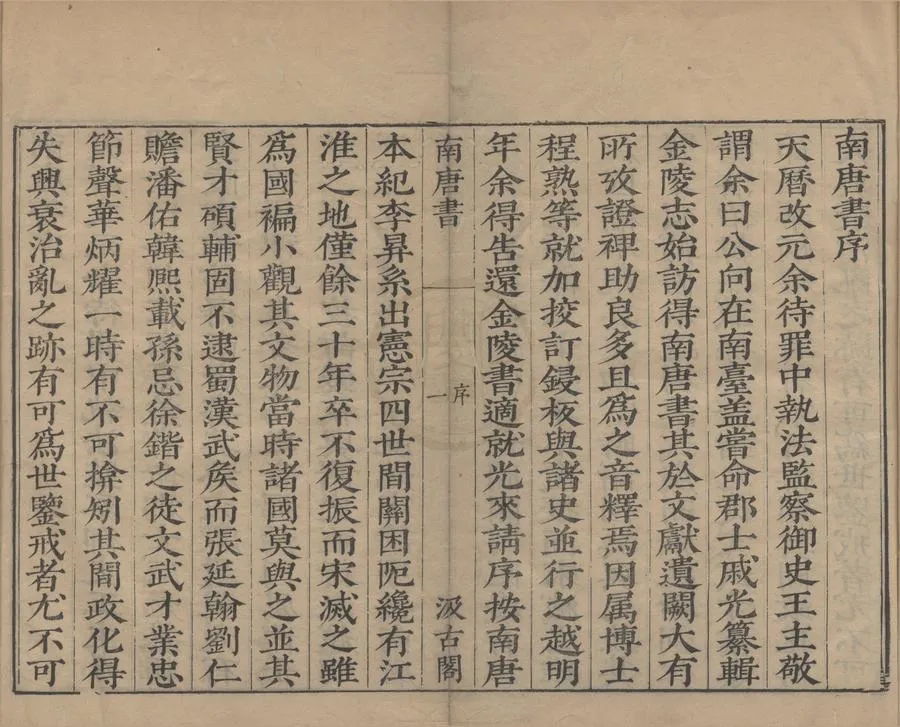 南唐書序
天曆改元余待罪中執法監察御史王主敬
謂余曰公向在南臺盖嘗命郡士戚光纂輯
金陵志始訪得南唐書其於文獻遺闕大有
所攷證裨助良多且爲之音釋焉因属博士
程熟等就加挍訂鋟板與諸史並行之越明
年余得告還金陵書適就光來請序按南唐
南唐書
序
一
汲古閣
本紀李昪系出憲宗四世間關困阨纔有江
淮之地僅餘三十年卒不復振而宋滅之雖
爲國褊小觀其文物當時諸國莫與之並其
賢才碩輔固不逮蜀漢武侯而張延翰劉仁
贍潘佑韓熙載孫忌徐鍇之徒文武才業忠
節聲華炳耀一時有不可揜矧其間政化得
失興衰治亂之跡有可爲世鑒戒者尤不可